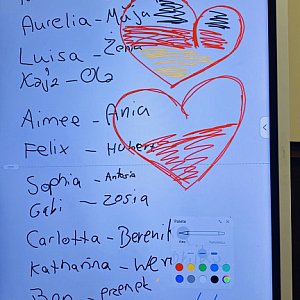 Aurelia - Maja
Luisa - Zenia
Kaja - Ola
Aimee - Ania
Felix - Hubert
Sophia - Antonia
Gabi - Zosia
Carlotta - Berenik
Katharina - Wer
Ben - Przemek
Palette